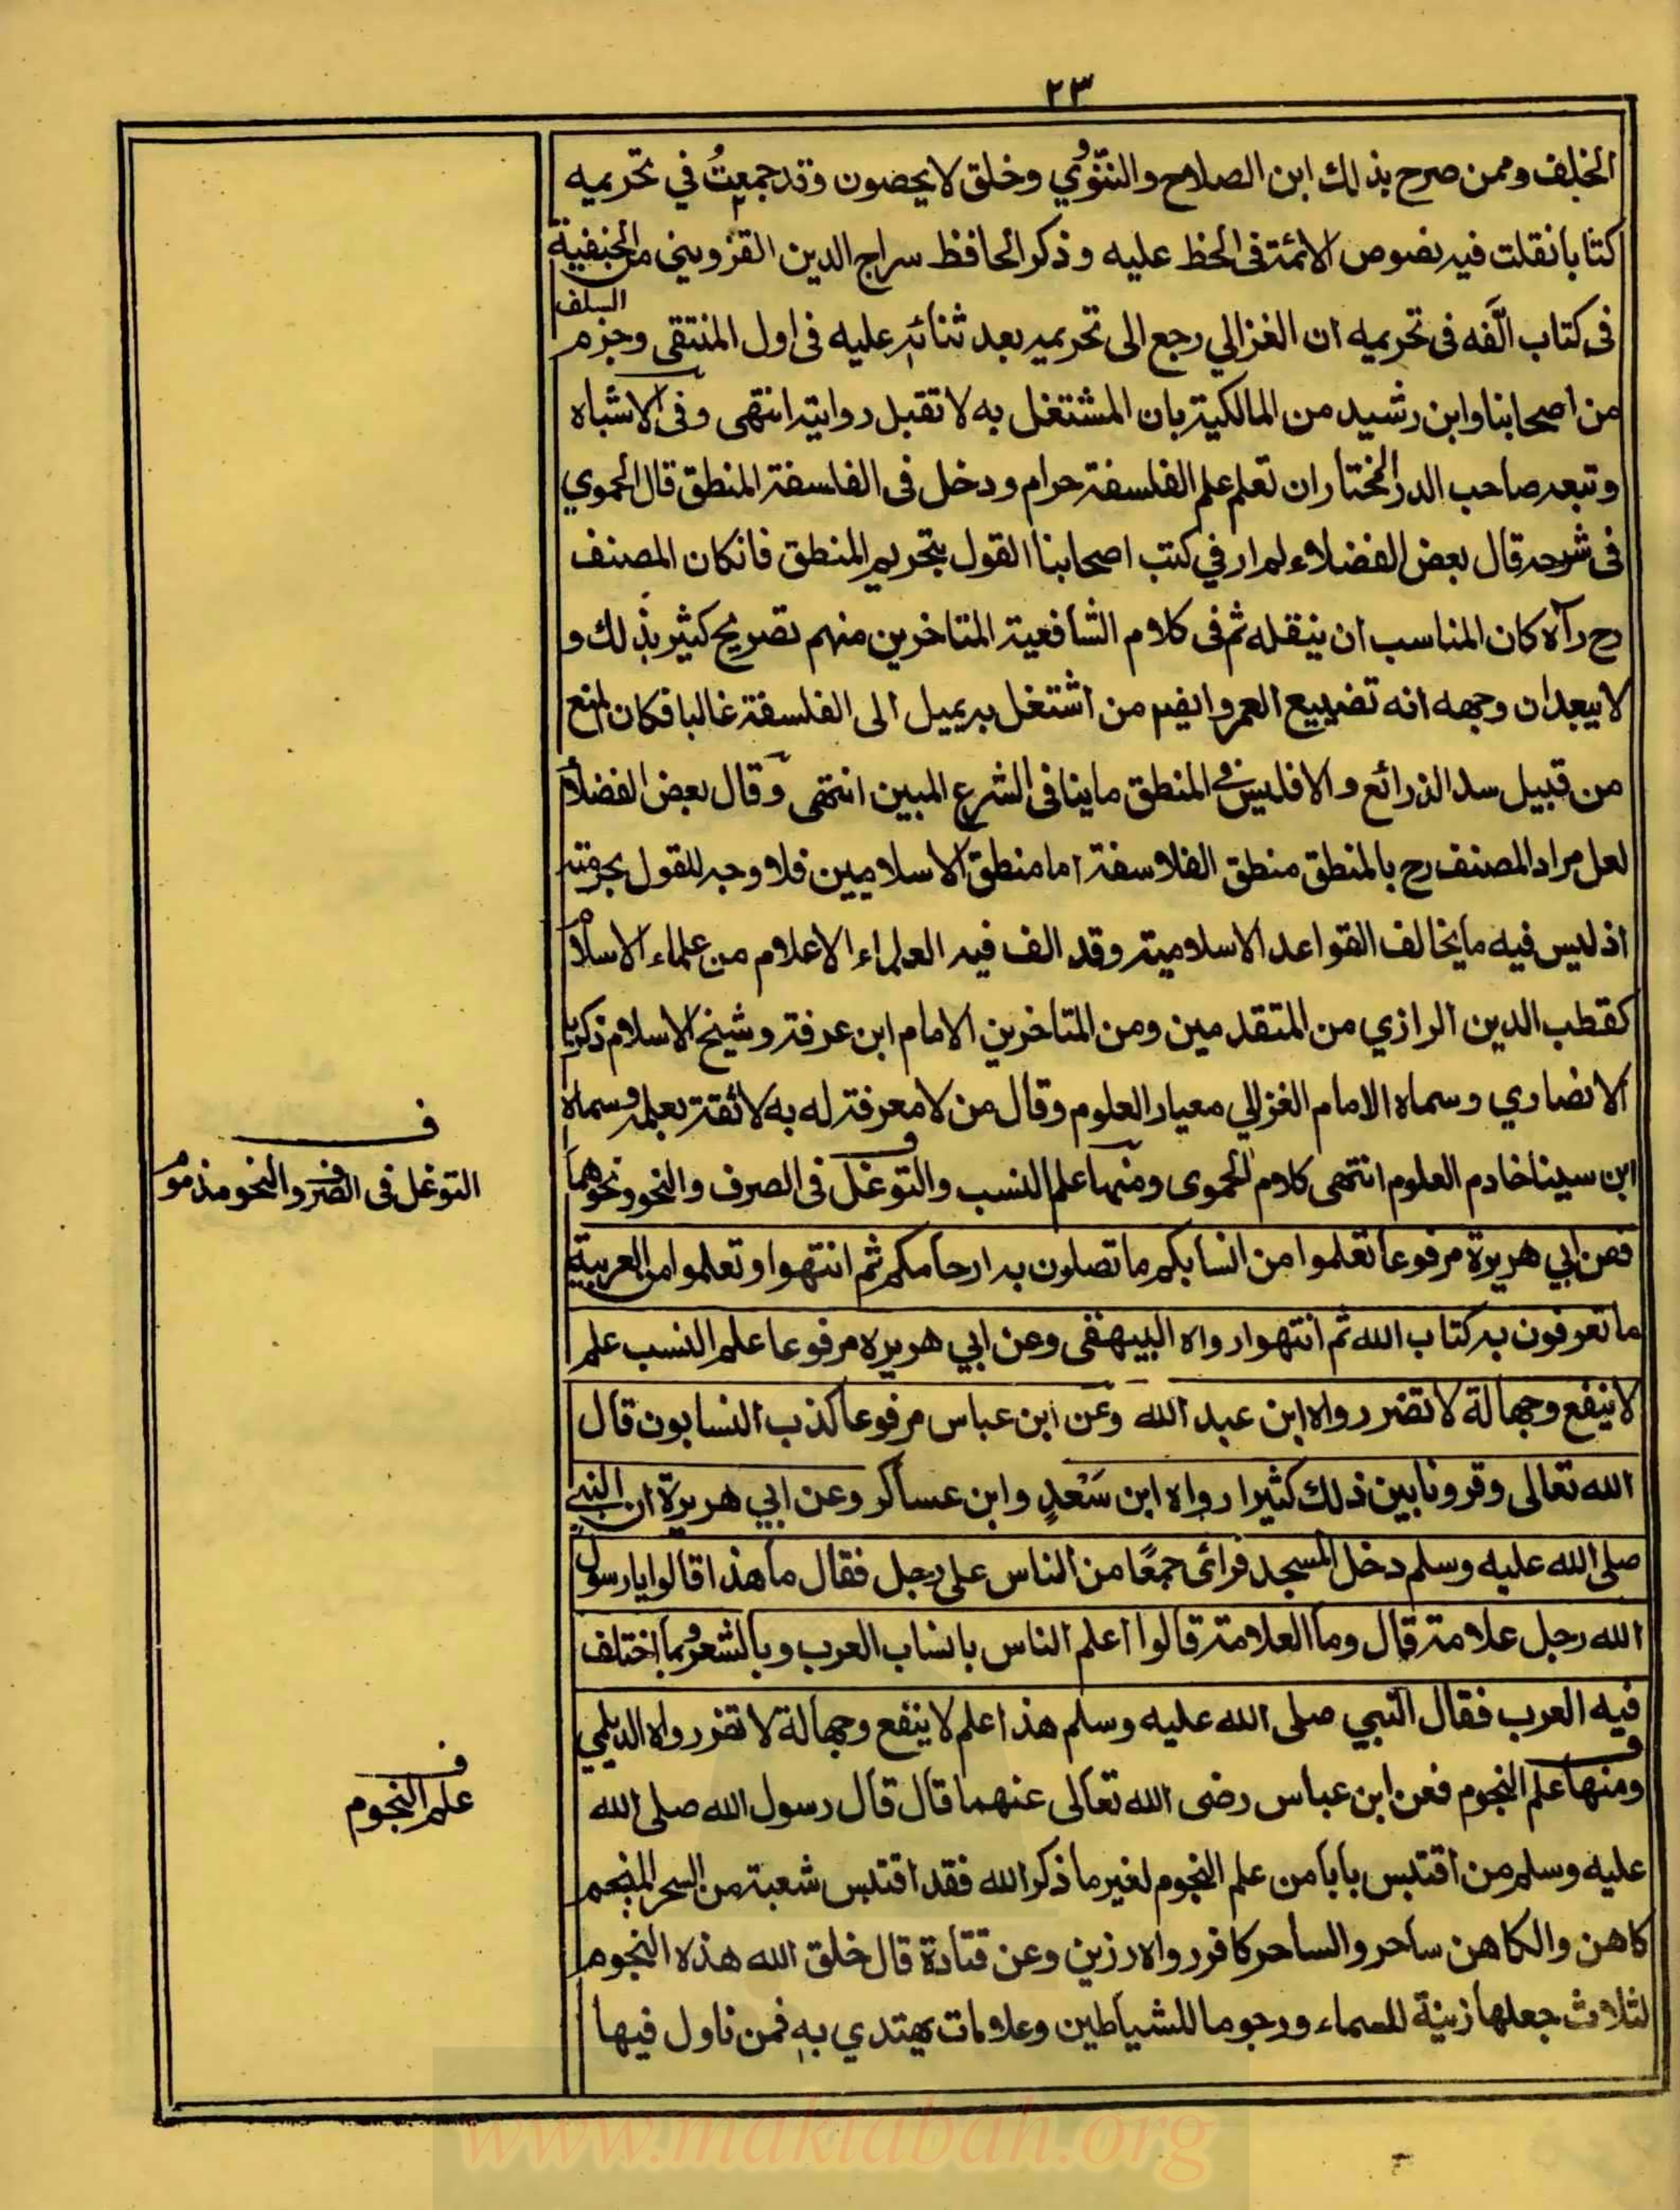 ٢٣
الخلف وممن صرح بذلك ابن الصلاح والنووي وخلق لا يحصون وقد جمعتُ في تحريمه
كتابا نقلت فيه نصوص الائمة فى الحظ عليه وذكر الحافظ سراج الدين القزويني من الحنفية
فى كتاب الّفه فى تحريمه ان الغزالي رجع الى تحريمه بعد ثنائه عليه فى اول المنتقى وجزم السلف
من اصحابنا وابن رشيد من المالكية بان المشتغل به لا تقبل روايته انتهى وفى الاشباه
وتبعه صاحب الدر المختار ان تعلم علم الفلسفة حرام ودخل فى الفلسفة المنطق قال الحموي
فى شرحه قال بعض الفضلاء لم ار في كتب اصحابنا القول بتحريم المنطق فانكان المصنف
رح رآه كان المناسب ان ينقله ثم فى كلام الشافعية المتاخرين منهم تصريح كثير بذلك و
لا يبعد ان وجهه انه تضييع العمر وايضم من اشتغل به يميل الى الفلسفة غالبا فكان المنع
من قبيل سد الذرائع والا فليس في المنطق ما ينافى الشرع المبين انتهى وقال بعض الفضلاء
لعل مراد المصنف رح بالمنطق منطق الفلاسفة اما منطق الاسلاميين فلا وجه للقول بحرمته
اذ ليس فيه ما يخالف القواعد الاسلامية وقد الف فيه العلماء الاعلام من علماء الاسلام
كقطب الدين الرازي من المتقدمين ومن المتاخرين الامام ابن عرفة وشيخ الاسلام زكريا
الانصاري وسماه الامام الغزالي معيار العلوم وقال من لا معرفة له به لا ثقة بعلمه وسماه
ابن سينا خادم العلوم انتهى كلام الحموى ومنها علم النسب والتوغل فى الصرف والنحو ونحوهما
فعن ابي هريرة مرفوعا تعلموا من انسابكم ما تصلون به ارحامكم ثم انتهوا وتعلموا من العربية
ما تعرفون به كتاب الله ثم انتهوا رواه البيهقى وعن ابي هريره مرفوعا علم النسب علم
لا ينفع وجهالة لا تضر رواه ابن عبد الله وعن ابن عباس مرفوعا كذب النسابون قال
الله تعالى وقرونا بين ذلك كثيرا رواه ابن سَعْدٍ وابن عساكر وعن ابي هريرة ان النبي
صلى الله عليه وسلم دخل المسجد فرائى جمعًا من الناس على رجل فقال ما هذا قالوا يا رسول
الله رجل علامة قال وما العلامة قالوا اعلم الناس بانساب العرب وبالشعر وبما اختلف
فيه العرب فقال النبي صلى الله عليه وسلم هذا علم لا ينفع وجهالة لا تضر رواه الديلمي
ومنها علم النجوم فعن ابن عباس رضى الله تعالى عنهما قال قال رسول الله صلى الله
عليه وسلم من اقتبس بابا من علم النجوم لغير ما ذكر الله فقد اقتبس شعبة من السحر المنجم
كاهن والكاهن ساحر والساحر كافر رواه رزين وعن قتادة قال خلق الله هذه النجوم
لثلاث جعلها زينة للسماء ورجوما للشياطين وعلامات يهتدي به فمن تاول فيها
ف
التوغل فى الصرف والنحو مذموم
ف
علم النجوم
www.maktabah.org